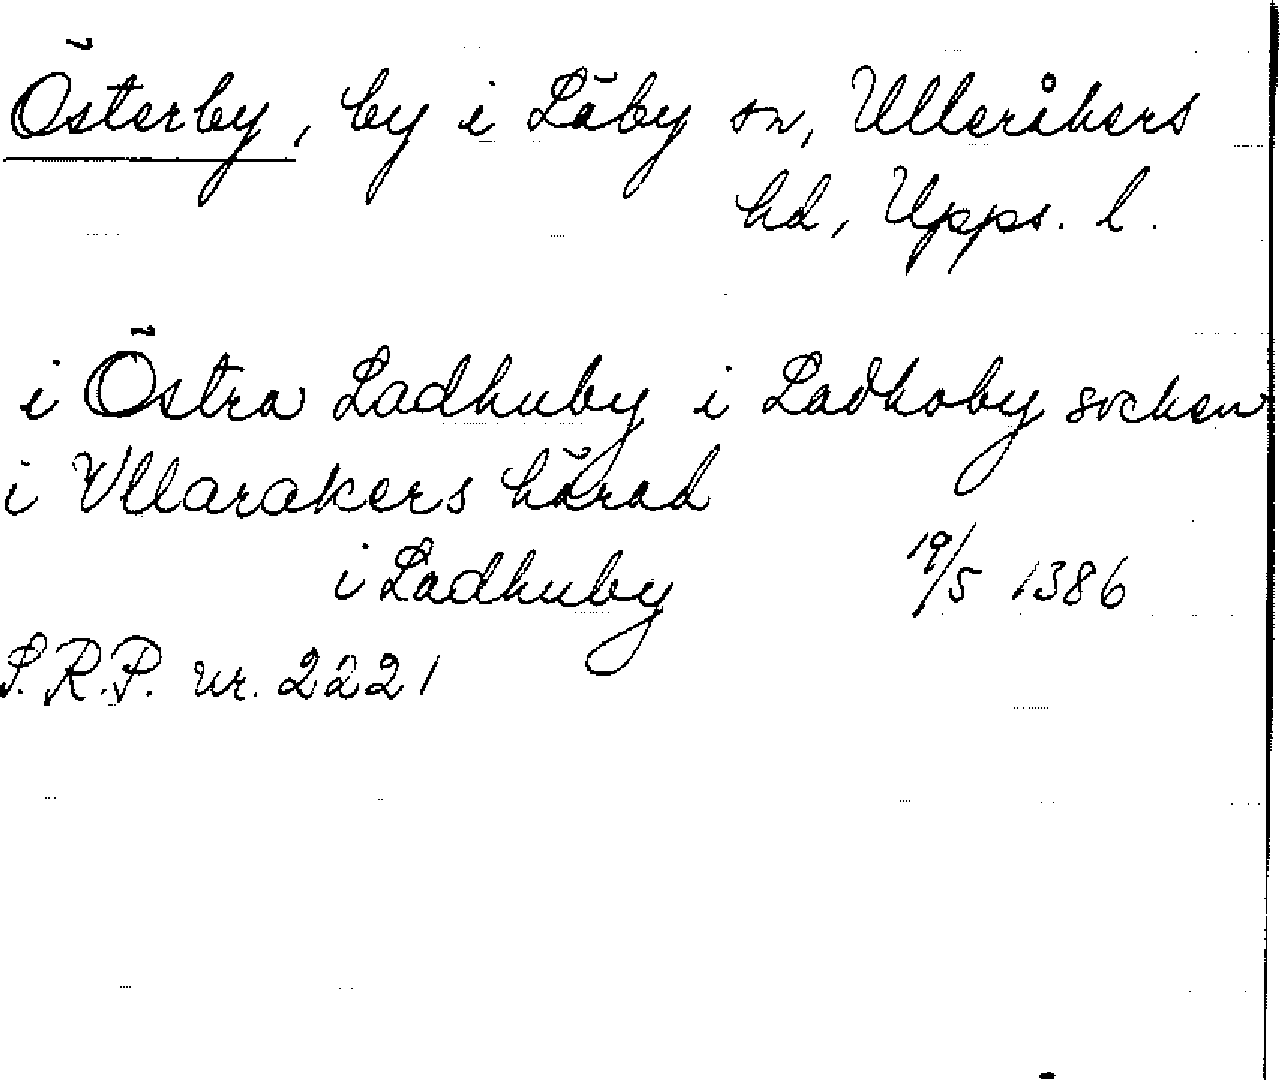 Österby, by i Läby sn, Ulleråkers
hd, Upps. l.
i Östra Ladhuby i Ladhoby socken
i Vllarakers härad
i Ladhuby 19/5 1386
S.R.P. nr. 2221